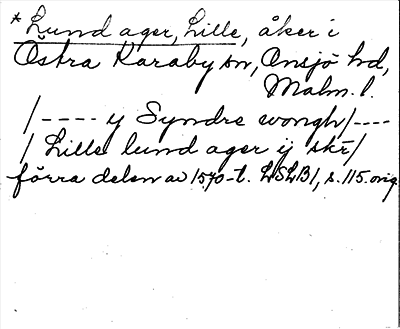 * Lund ager, Lille, åker i
Östra Karaby sn, Onsjö hd,
Malm. l.
/---- y Syndre wongh/----
/ Lille lund ager ij skr/
förra delen av 1570-t. LSLB1, s. 115. orig.